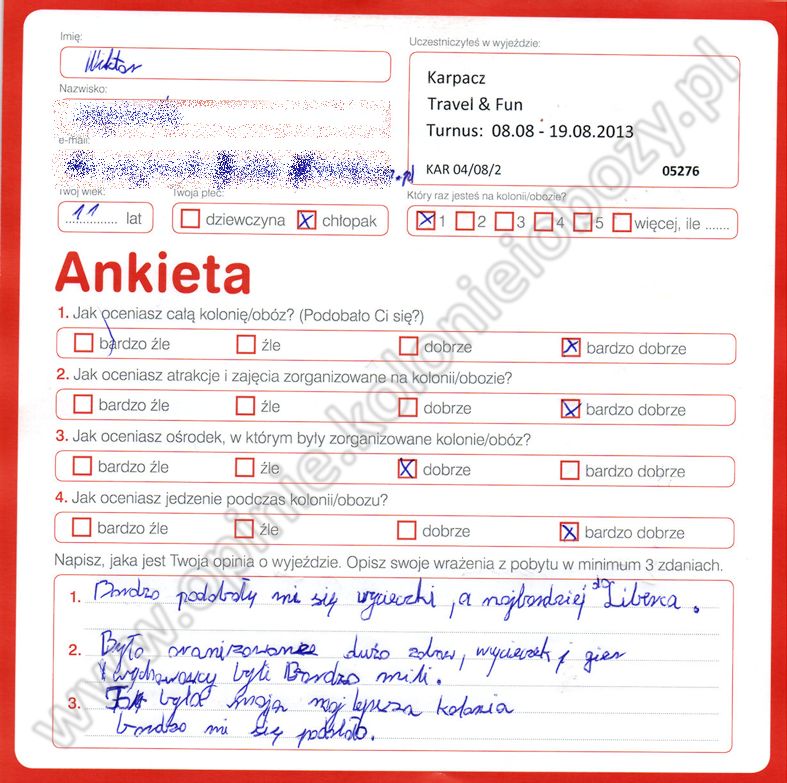 Imię:
Wiktor
Uczestniczyłeś w wyjeździe:
Karpacz
Travel & Fun
Turnus: 08.08 - 19.08.2013
KAR 04/08/2 05276
Nazwisko:
e-mail:
.pl
Twój wiek:
11 lat
Twoja płeć:
dziewczyna chłopak
Który raz jesteś na kolonii/obozie?
1 2 3 4 5 więcej, ile .......
Ankieta
1. Jak oceniasz całą kolonię/obóz? (Podobało Ci się?)
bardzo źle źle dobrze bardzo dobrze
2. Jak oceniasz atrakcje i zajęcia zorganizowane na kolonii/obozie?
bardzo źle źle dobrze bardzo dobrze
3. Jak oceniasz ośrodek, w którym były zorganizowane kolonie/obóz?
bardzo źle źle dobrze bardzo dobrze
4. Jak oceniasz jedzenie podczas kolonii/obozu?
bardzo źle źle dobrze bardzo dobrze
Napisz, jaka jest Twoja opinia o wyjeździe. Opisz swoje wrażenia z pobytu w minimum 3 zdaniach.
1. Bardzo podobały mi się wycieczki, a najbardziej do Liberca.
2. Było dużo wycieczek i gier
wychowawcy byli Bardzo mili.
3. była moja najlepsza kolonia
bardzo mi się podobało.
www.opinie.kolonieiobozy.pl